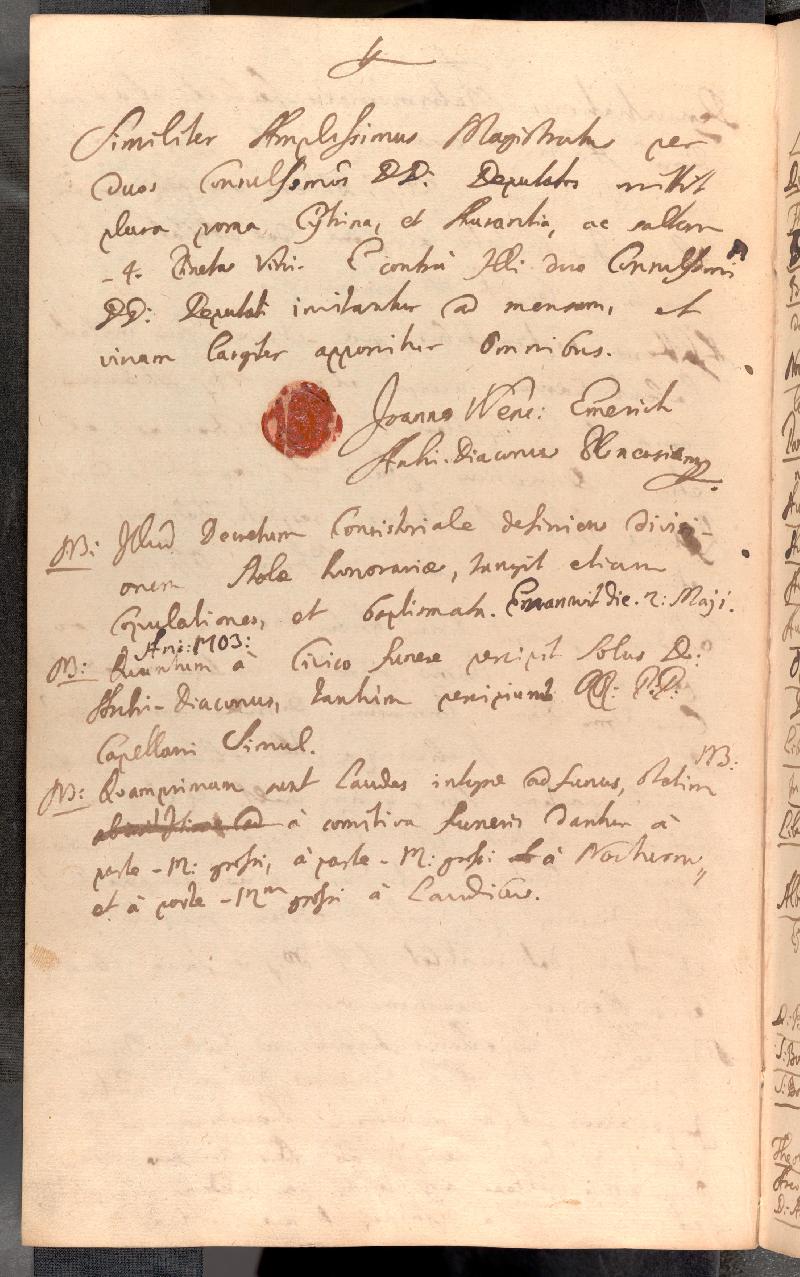 Similiter Amplissimus Magistratus per
duos Consulssimos DD: Deputatos mittit
plura poma Cÿtrina, et Aurantia, ac saltem
- 4. Pinctas Vini. E contrà Illi duo Consulssimi
DD: Deputati invitantur ad mensam, et
vinum largiter apponitur Omnibus.
Joannes Wenc: Emerich
Archi-Diaconus
NB: Illud Decretum Consistoriale definiens divisi-
onem Stolæ honorariæ, tangit etiam
Copulationes, et baptismata. Emanavit die. 2: Maji.
Ani: 1703:
NB: Quantum à Civico funere percipit Solus D:
Archi-Diaconus, tantum percipiunt PP:
Capellani Simul.
NB:
NB: Quamprimum sunt Laudes integræ ad funus, statim
à comitiva funeris dantur à
parte - grossi, à parte - grossi à Nocturn,,
et à parte - grossi à Laudibus.